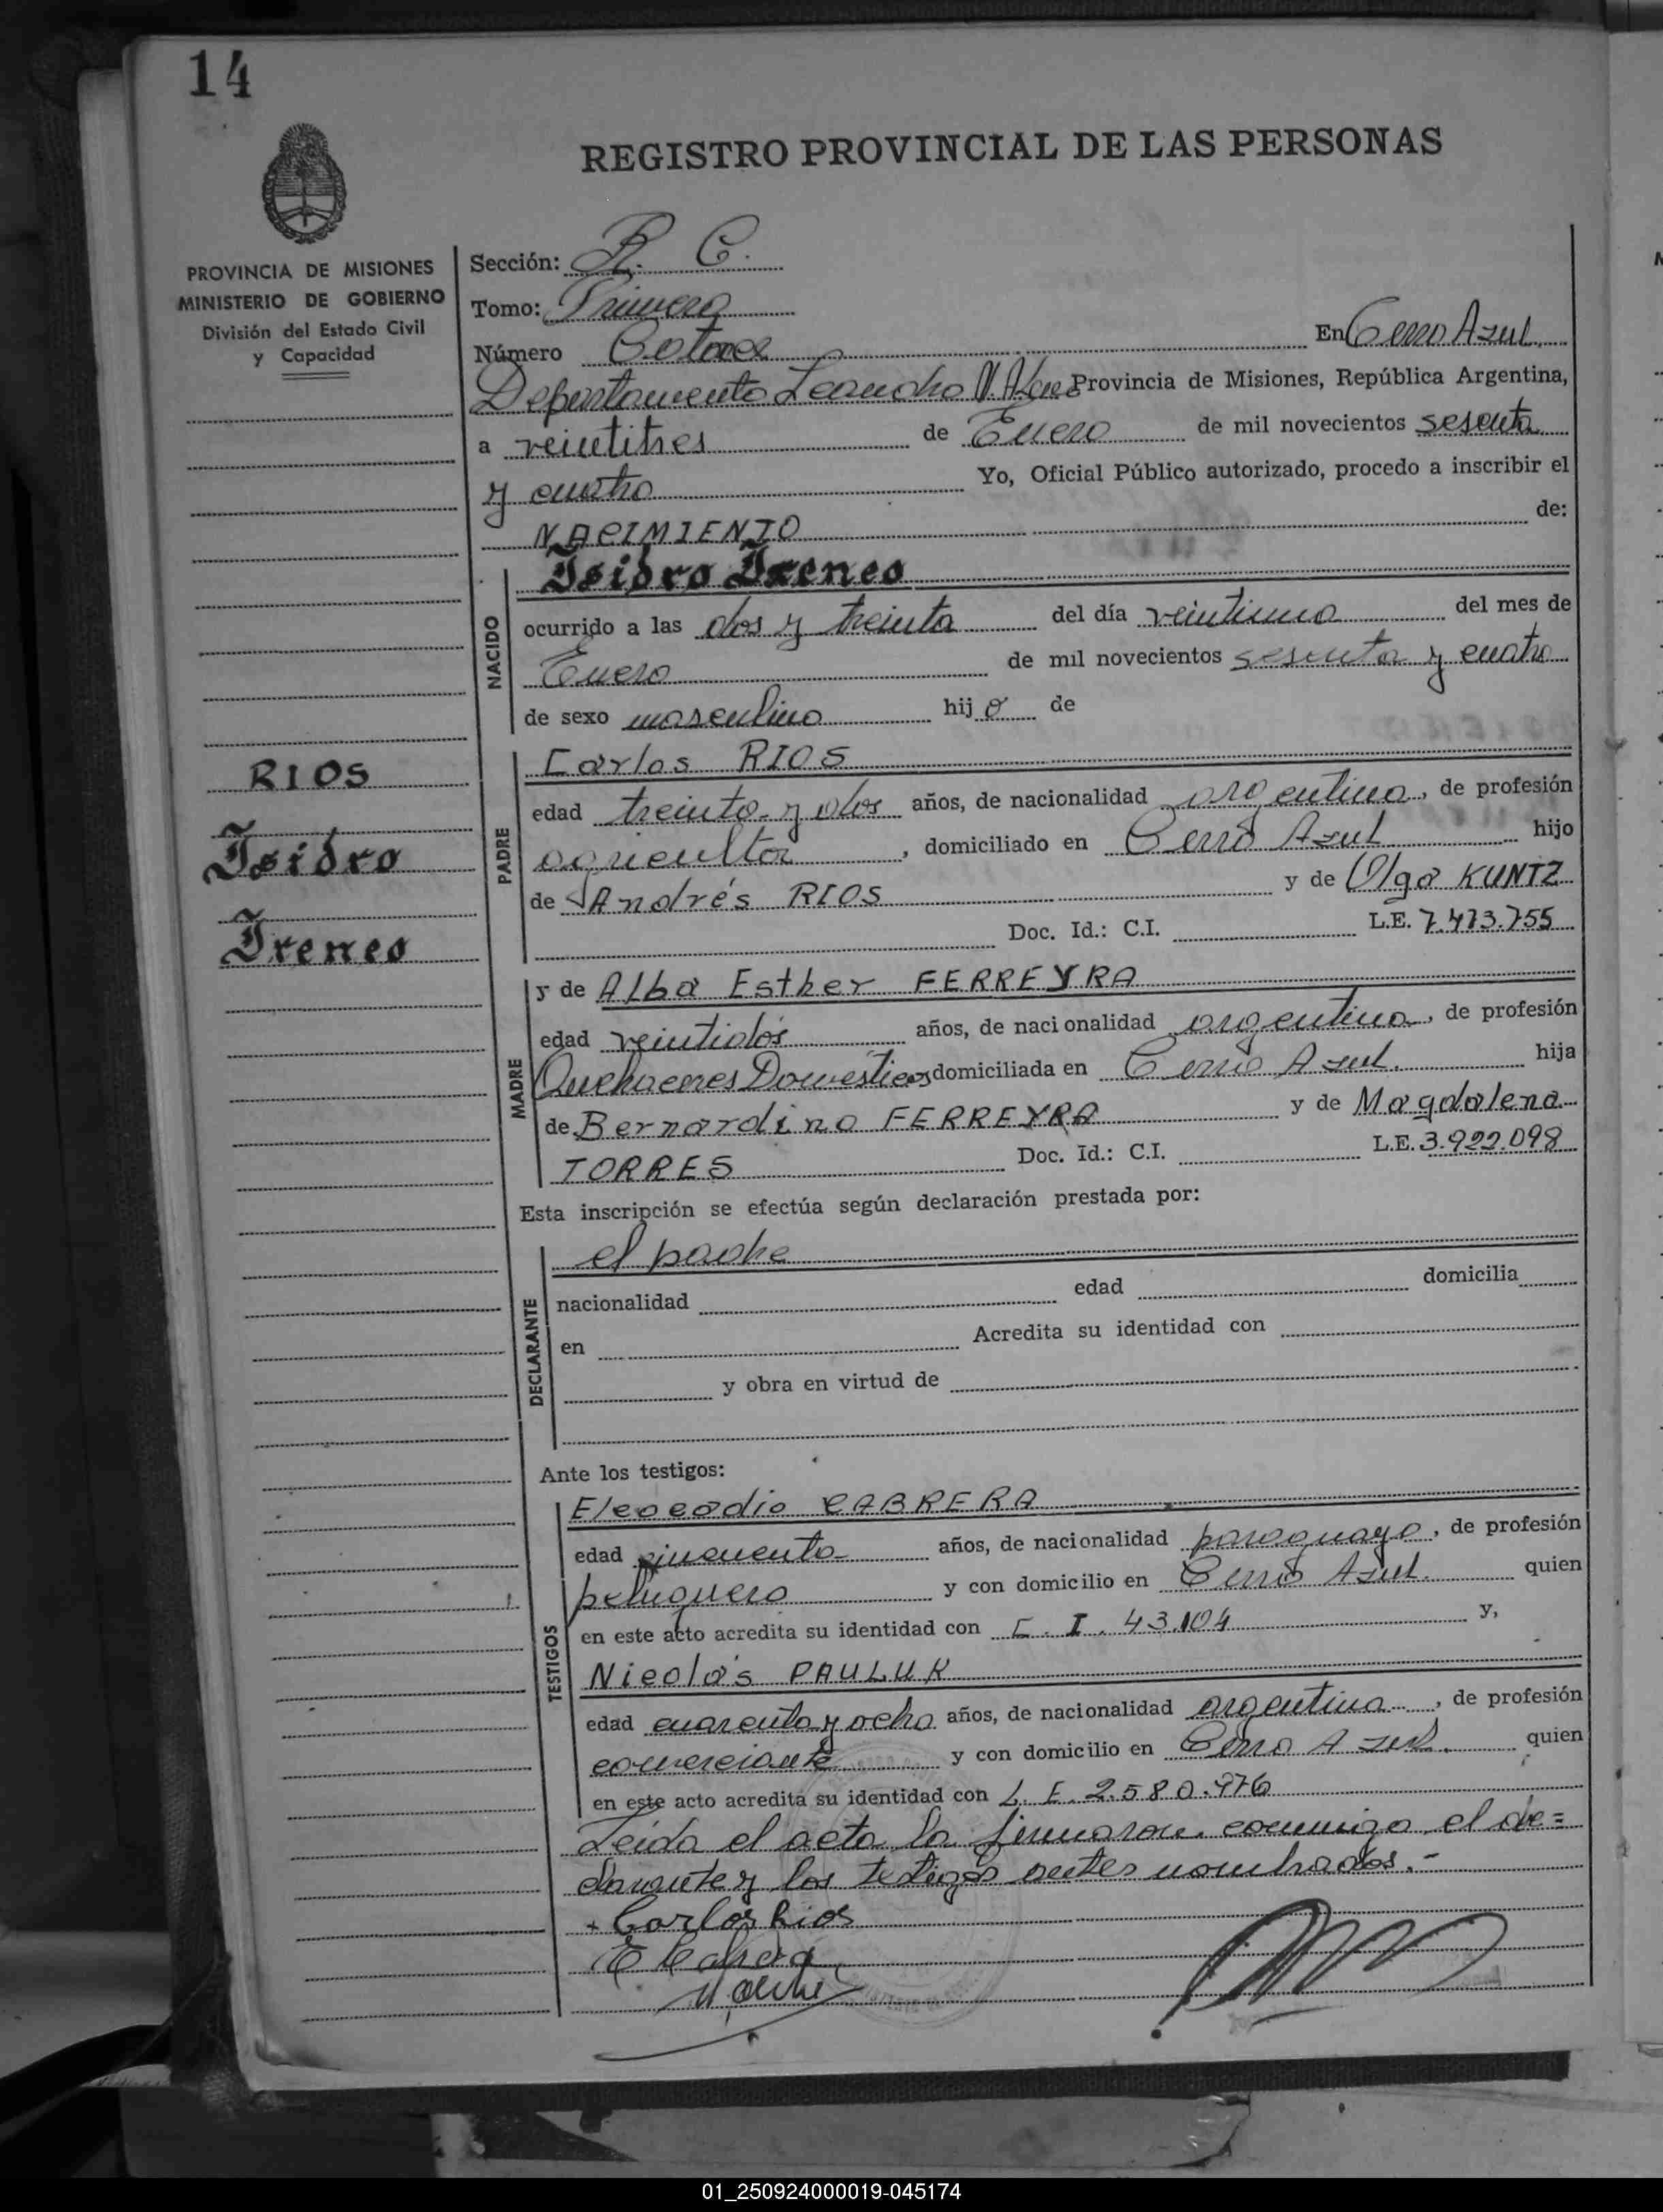 14
REGISTRO PROVINCIAL DE LAS PERSONAS
PROVINCIA DE MISIONES
MINISTERIO DE GOBIERNO
División del Estado Civil
y Capacidad
Sección: R. C.
Tomo: Primero
Número Catorce En Cerro Azul,
Departamento Leandro N. Alem Provincia de Misiones, República Argentina,
a veintitres de Enero de mil novecientos sesenta
y cuatro Yo, Oficial Público autorizado, procedo a inscribir el
NACIMIENTO de:
NACIDO
Isidro Ireneo
ocurrido a las dos y treinta del día veintiuno del mes de
Enero de mil novecientos sesenta y cuatro
de sexo masculino hijo de
RIOS
Isidro
Ireneo
PADRE
Carlos RIOS
edad treinta y dos años, de nacionalidad argentina, de profesión
agricultor, domiciliado en Cerro Azul hijo
de Andrés RIOS y de Olga KUNTZ
Doc. Id.: C.I. L.E. 7.473.755
MADRE
y de Alba Esther FERREYRA
edad veintidós años, de nacionalidad argentina, de profesión
Quehaceres Domésticos domiciliada en Cerro Azul. hija
de Bernardino FERREYRA y de Magdalena
TORRES Doc. Id.: C.I. L.E. 3.922.098
Esta inscripción se efectúa según declaración prestada por:
DECLARANTE
el padre
nacionalidad edad domicilia
en Acredita su identidad con
y obra en virtud de
Ante los testigos:
TESTIGOS
Eleocadio CABRERA
edad cincuenta años, de nacionalidad paraguayo, de profesión
peluquero y con domicilio en Cerro Azul. quien
en este acto acredita su identidad con C. I. 43.104 y,
Nicolás PAULUK
edad cuarenta y ocho años, de nacionalidad argentina, de profesión
comerciante y con domicilio en Cerro Azul. quien
en este acto acredita su identidad con L. E. 2.580.976
Leída el acta la firmaron conmigo el de=
clarante y los testigos antes nombrados.-
+ Carlos Rios
E Cabrera
01_250924000019-045174